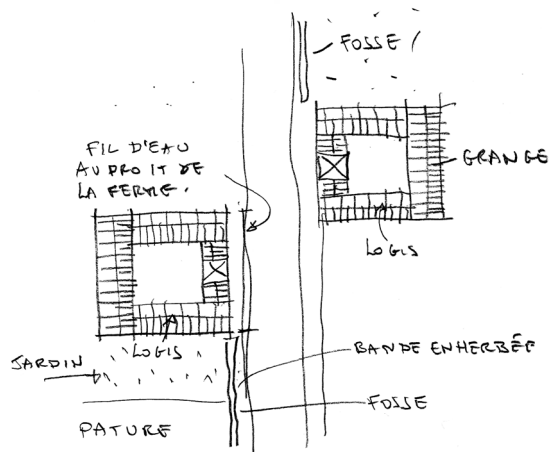 FOSSE
FIL D'EAU
AU PROIT DE
LA FERME.
GRANGE
LOGIS
LOGIS
JARDIN
BANDE ENHERBÉE
FOSSE
PATURE